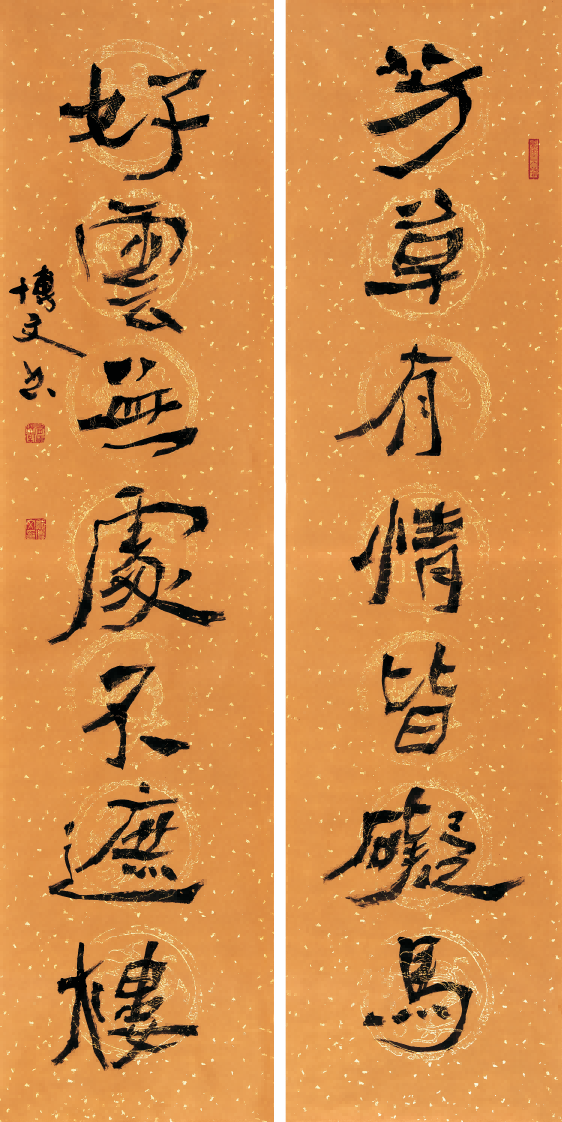 芳草有情皆礙馬
好雲無處不遮樓
博文書